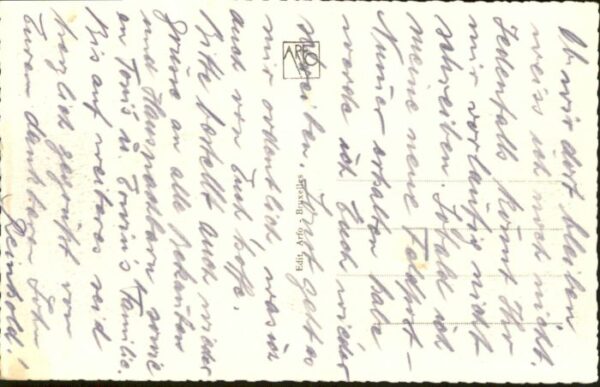 Ob wir dort bleiben
weiss ich noch nicht.
Jedenfalls könnt Ihr
mir vorläufig nicht
schreiben. Sobald ich
meine neue Feldpost-
Numer erhalten habe
werde ich Euch wieder
schreiben. Jetzt geht es
mir ordentlich was ich
auch von Euch hoffe.
Bitte bestellt auch wieder
Grüsse an alle Bekannten
und Hausnachbarn sowie
an Toni's u. Familie.
Bis auf weiteres seid
herzlich gegrüßt von
Eurem dankbaren Sohn
Reinhold!
ARFO
Edit. Arfo - Bruxelles